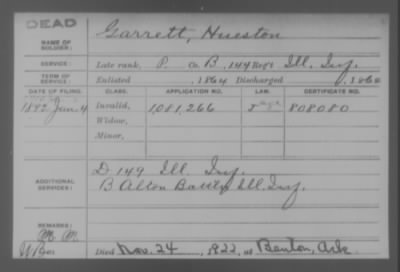 DEAD
NAME OF SOLDIER: Garrett, Hueston
SERVICE: Late rank, P. Co. B, 144 Reg't Ill. Inf.
TERM OF SERVICE: Enlisted , 1864 Discharged , 186
DATE OF FILING. CLASS. APPLICATION NO. LAW. CERTIFICATE NO.
1892 Jan 4 Invalid, 1,081,266 808080
Widow,
Minor,
ADDITIONAL SERVICES: D 149 Ill. Inf.
B Alton Batt'y Ill. Inf.
REMARKS:
Died Nov. 24 , 1922, at Benton, Ark.